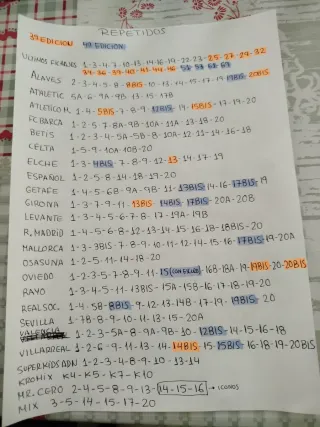 REPETIDOS
3ª EDICION 4ª EDICION
ULTIMOS FICHAJES 1-3-4-7-10-13-14-16-19-22-23-25-27-29-32
34-36-39-40-41-44-46
ALAVES 2-3-4-5-8-8BIS-10-13-14-15-17-19-19BIS-20BIS
ATHLETIC 5A-6-9A-9B-13-15-17B
ATLETICO M. 1-4-5BIS-7-8-9-12BIS-13-15BIS-17-19-20
FC BARCA 1-2-5-7-8A-9B-10A-11A-13-18-20
BETIS 1-2-3-4-5A-5B-8-10A-12-11-14-16-18
CELTA 1-5-9-10A-10B-20
ELCHE 1-3-4BIS-7-8-9-12-13-14-17-19
ESPAÑOL 1-2-5-8-14-18-19-20
GETAFE 1-4-5-6B-9A-9B-11-13BIS-14-16-17BIS-19
GIRONA 1-3-7-9-11-13BIS-14BIS-17BIS-20A-20B
LEVANTE 1-3-4-5-6-7-8-17-19A-19B
R. MADRID 1-4-5-6-8-12-13-14-15-16-18-18BIS-20
MALLORCA 1-3-3BIS-7-8-9-10-11-12-14-15-16-17BIS-19-20A
OSASUNA 1-2-5-11-14-18-20
OVIEDO 1-2-3-5-7-8-9-11-15-16B-18A-19-19BIS-20-20BIS
RAYO 1-3-4-5-11-13BIS-15A-15B-16-17-18-19-20
REAL SOC. 1-4-5B-8BIS-9-12-13-14B-17-19-19BIS-20
SEVILLA 1-7B-8-9-10-11-13-15-20A
VALENCIA 1-2-3-5A-8-9A-9B-10-12BIS-14-15-16-18
VILLARREAL 1-2-6-9-11-13-14-14BIS-15-15BIS-16-18-19-20BIS
SUPERKIDS ADN 1-2-3-4-8-9-10-13-14
KROMIX K4-K5-K7-K10
MR. CERO 2-4-5-8-9-13-14-15-16 ICONOS
MIX 3-5-14-15-17-20